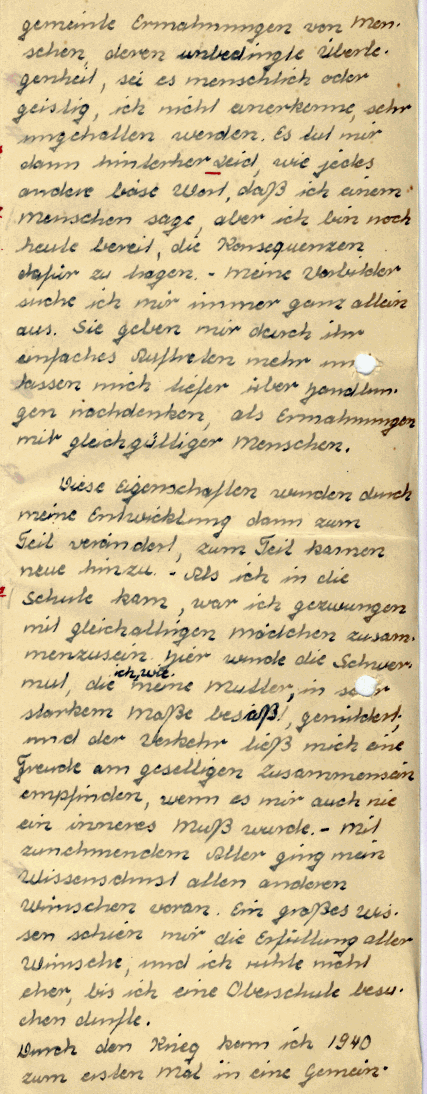 gemeinte Ermahnungen von Men-
schen, deren unbedingte Überle-
genheit, sei es menschlich oder
geistig, ich nicht anerkenne, sehr
ungehalten werden. Es tut mir
dann hinterher Leid, wie jedes
andere böse Wort, daß ich einem
Menschen sage, aber ich bin noch
heute bereit, die Konsequenzen
dafür zu tragen. - Meine Vorbilder
suche ich mir immer ganz allein
aus. Sie geben mir durch ihr
einfaches Auftreten mehr un
lassen mich tiefer über Handlun-
gen nachdenken, als Ermahnungen
mir gleichgültiger Menschen.
Diese Eigenschaften wurden durch
meine Entwicklung dann zum
Teil verändert, zum Teil kamen
neue hinzu. - Als ich in die
Schule kam, war ich gezwungen
mit gleichaltrigen Mädchen zusam-
menzusein. Hier wurde die Schwer-
mut, die ich, wie meine Mutter, in se r
starkem Maße besaß, gemildert,
und der Verkehr ließ mich eine
Freude am geselligen Zusammensein
empfinden, wenn es mir auch nie
ein inneres Muß wurde. - Mit
zunehmendem Alter ging mein
Wissensdurst allen anderen
Wünschen voran. Ein großes Wis-
sen schien mir die Erfüllung aller
Wünsche, und ich ruhte nicht
eher, bis ich eine Oberschule besu-
chen durfte.
Durch den Krieg kam ich 1940
zum ersten Mal in eine Gemein-